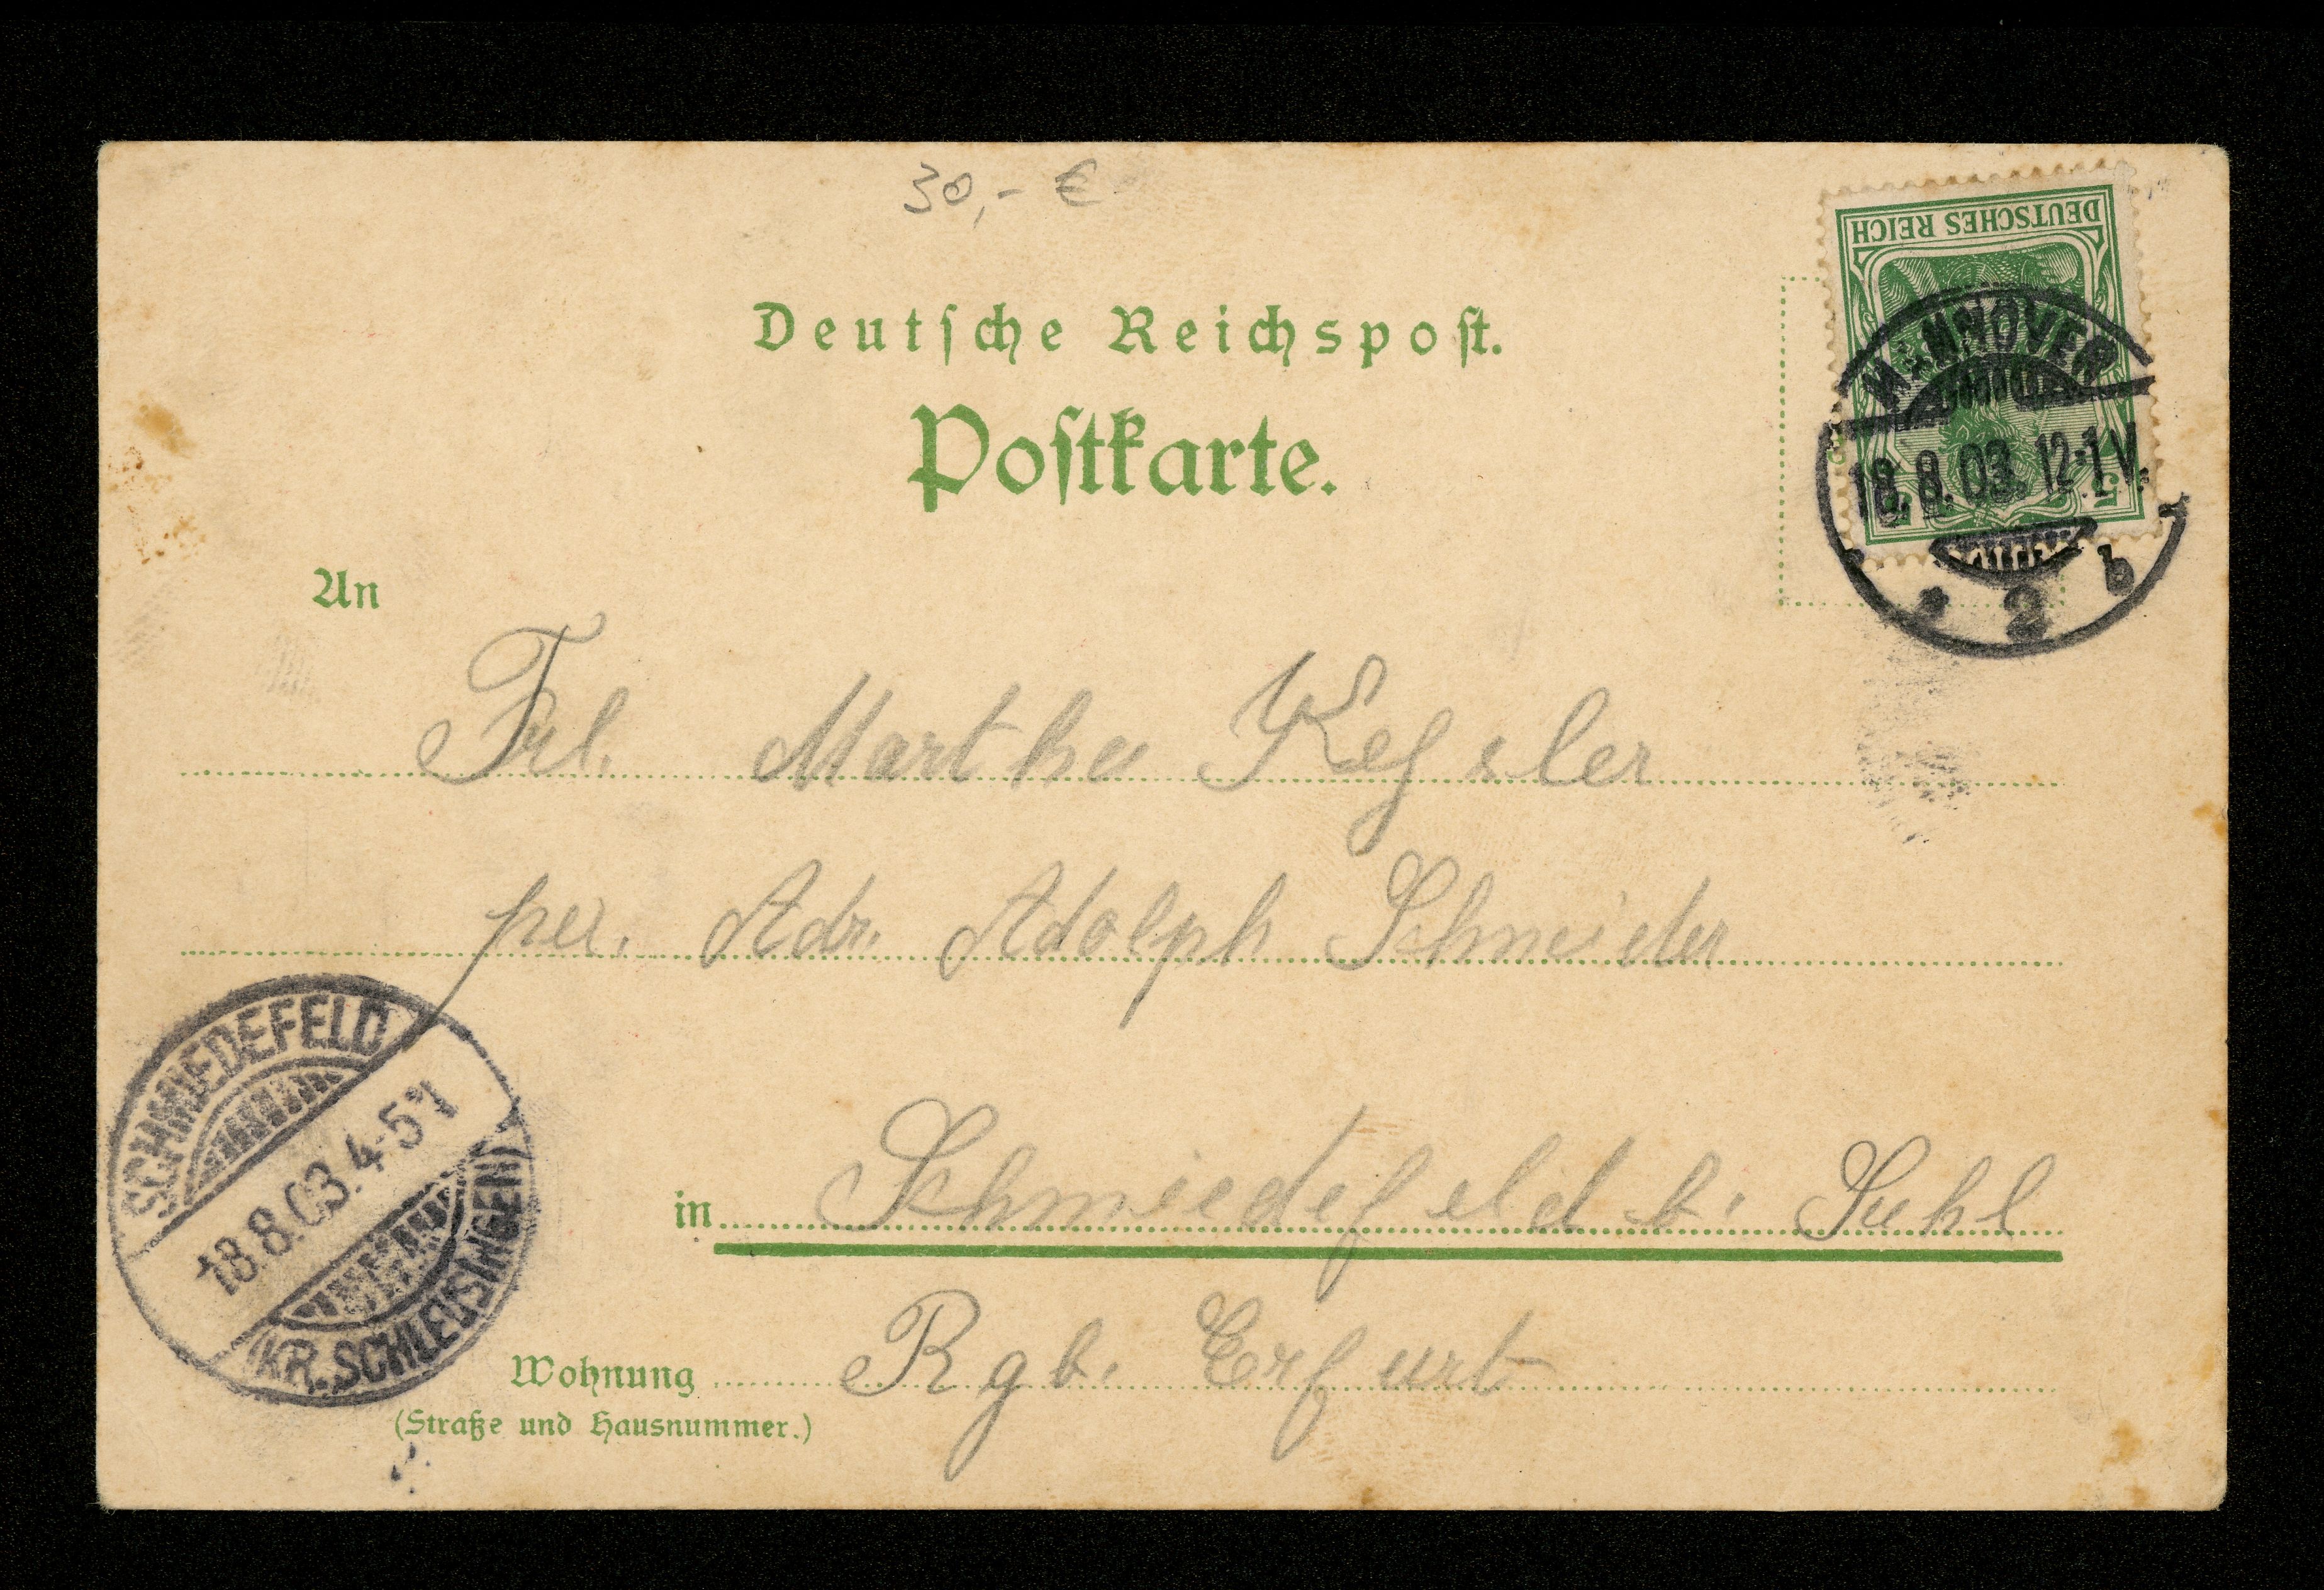 30,- €
DEUTSCHES REICH
5 5
HANNOVER
18.8.03. 12-1 V.
* 2 b
Deutsche Reichspost.
Postkarte.
An
Frl. Martha Keßler
per. Adr. Adolph Schneider
in Schmiedefeld b. Suhl
Wohnung Rgb. Erfurt
(Straße und Hausnummer.)
SCHMIEDEFELD
18.8.03. 4-5
(KR. SCHLEUSINGEN)